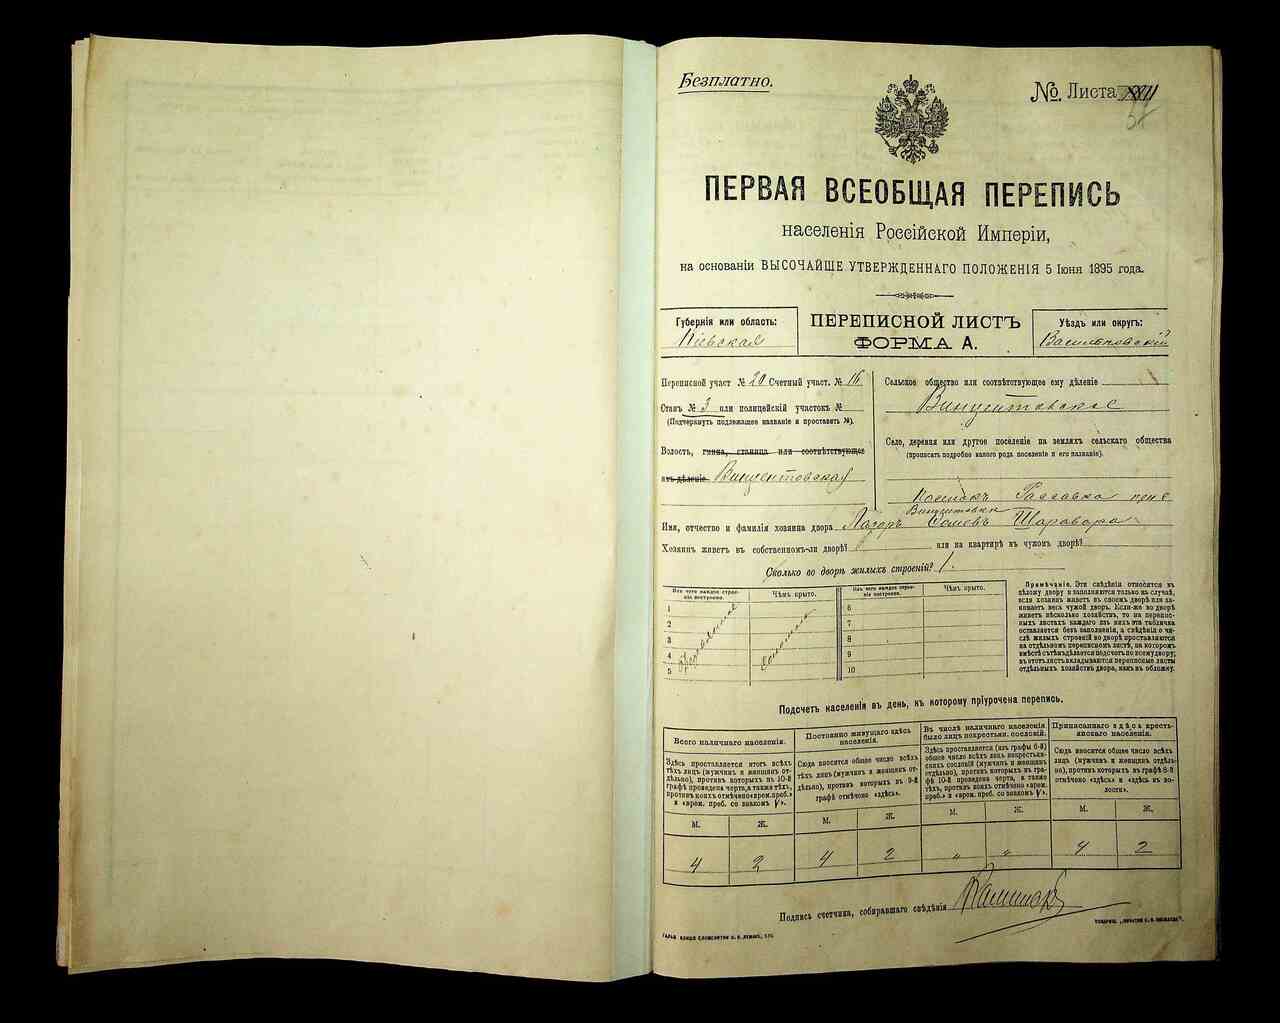 Безплатно.
№. Листа
ПЕРВАЯ ВСЕОБЩАЯ ПЕРЕПИСЬ
населенія Россійской Имперіи,
на основаніи ВЫСОЧАЙШЕ УТВЕРЖДЕННАГО ПОЛОЖЕНІЯ 5 Іюня 1895 года.
Губернія или область:
Кіевская
ПЕРЕПИСНОЙ ЛИСТЪ
ФОРМА А.
Уѣздъ или округъ:
Васильковскій
Переписной участ № 20 Счетный участ. № 16
Станъ № 3 или полицейскій участокъ №
(Подчеркнуть подлежащее названіе и проставить №).
Волость, гмина, станица или соотвѣтствующее
дѣленіе Винцентовская
Сельское общество или соотвѣтствующее ему дѣленіе
Винцентовское
Село, деревня или другое поселеніе на земляхъ сельскаго общества
(прописать подробно какого рода поселеніе и его названіе).
Винцентовки
Имя, отчество и фамилія хозяина двора Лазорь Шаравара
Хозяинъ живетъ въ собственномъ-ли дворѣ? или на квартирѣ въ чужомъ дворѣ?
Сколько во дворѣ жилыхъ строеній? 1.
Изъ чего каждое строеніе построено.
Чѣмъ крыто.
Изъ чего каждое строеніе построено.
Чѣмъ крыто.
1
2
3
4
5
деревянное
соломою
6
7
8
9
10
Примѣчаніе. Эти свѣдѣнія относятся къ
цѣлому двору и заполняются только въ случаѣ,
если хозяинъ живетъ въ своемъ дворѣ или занимаетъ
весь чужой дворъ. Если-же во дворѣ
живетъ нѣсколько хозяйствъ, то на переписныхъ
листахъ каждаго изъ нихъ эта табличка
оставляется безъ заполненія, а свѣдѣнія о числѣ
жилыхъ строеній во дворѣ проставляются
на отдѣльномъ переписномъ листѣ, на которомъ
вмѣстѣ съ тѣмъ дѣлается подсчетъ по всему двору;
въ этотъ листъ вкладываются переписные листы
отдѣльныхъ хозяйствъ двора, какъ въ обложку.
Подсчетъ населенія въ день, къ которому пріурочена перепись.
Всего наличнаго населенія.
Здѣсь проставляется итогъ всѣхъ
тѣхъ лицъ (мужчинъ и женщинъ отдѣльно),
противъ которыхъ въ 10-й
графѣ проведена черта, а также тѣхъ,
противъ коихъ отмѣчено «врем. преб.»
и «врем. преб. со знакомъ V».
Постоянно живущаго здѣсь
населенія.
Сюда вносится общее число всѣхъ
тѣхъ лицъ (мужчинъ и женщинъ отдѣльно),
противъ которыхъ въ 9-й
графѣ отмѣчено «здѣсь».
Въ числѣ наличнаго населенія
было лицъ некрестьян. сословій.
Здѣсь проставляется (изъ графы 6-й)
общее число всѣхъ лицъ некрестьянскихъ
сословій (мужчинъ и женщинъ
отдѣльно), противъ которыхъ въ графѣ
10-й проведена черта, а также
тѣхъ, противъ коихъ отмѣчено «врем.
преб.» и «врем. преб. со знакомъ V».
Приписаннаго здѣсь крестьянскаго
населенія.
Сюда вносится общее число всѣхъ
лицъ (мужчинъ и женщинъ отдѣльно),
противъ которыхъ въ графѣ 8-й
отмѣчено «здѣсь» и «здѣсь въ волости».
М. Ж. М. Ж. М. Ж. М. Ж.
4 2 4 2 " " 4 2
Подпись счетчика, собиравшаго свѣдѣнія